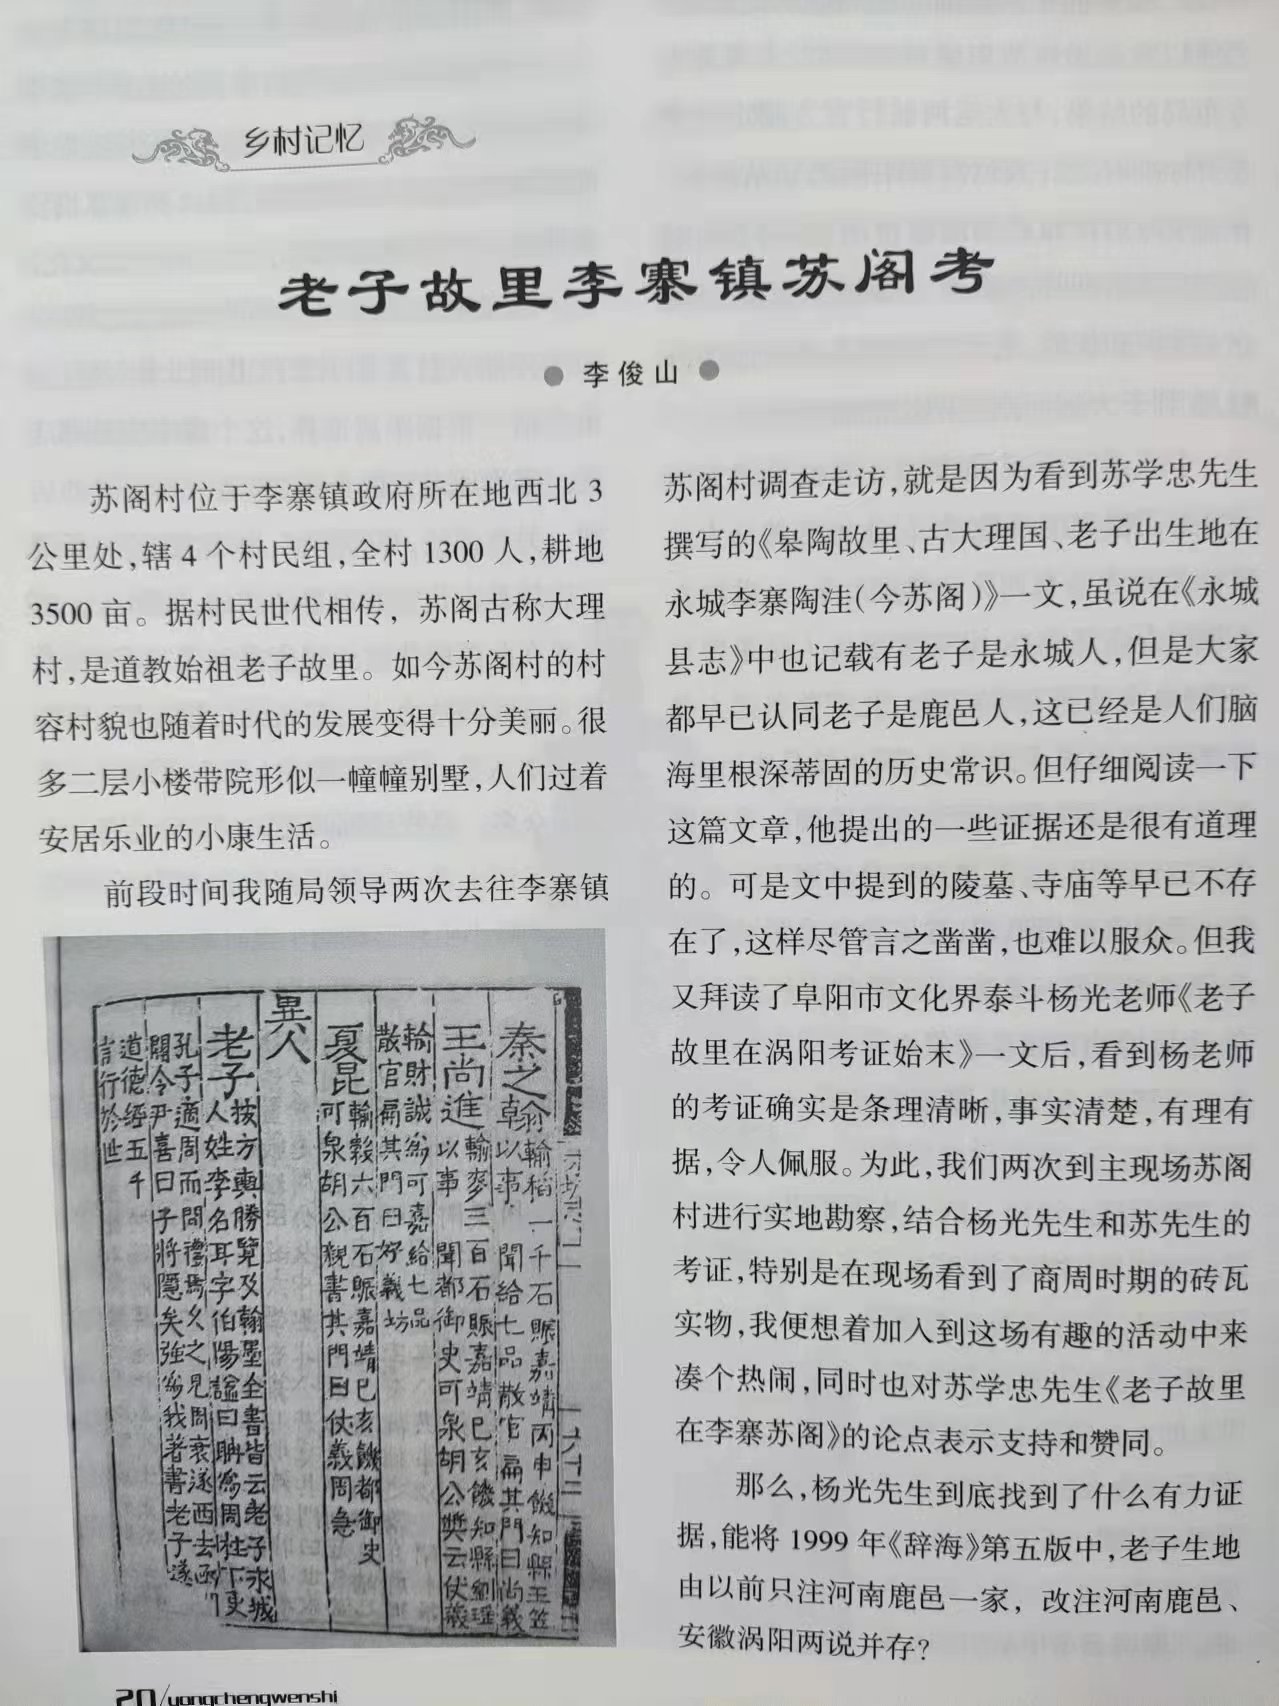 乡村记忆
老子故里李寨镇苏阁考
● 李俊山 ●
苏阁村位于李寨镇政府所在地西北 3
公里处，辖 4 个村民组，全村 1300 人，耕地
3500 亩。据村民世代相传，苏阁古称大理
村，是道教始祖老子故里。如今苏阁村的村
容村貌也随着时代的发展变得十分美丽。很
多二层小楼带院形似一幢幢别墅，人们过着
安居乐业的小康生活。
前段时间我随局领导两次去往李寨镇
秦之翰
輸稻一千石賑嘉靖丙申饑知縣王笠
以事聞給七品散官扁其門曰尚義
王尚進
輸麥三百石賑嘉靖己亥饑知縣劉瑶
以事聞都御史可泉胡公奬云仗義
輸財誠爲可嘉給七品
散官扁其門曰好義坊
夏昆
輸穀六百石賑嘉靖己亥饑都御史
可泉胡公親書其門曰仗義周急
異人
老子
按方輿勝覽及翰墨全書皆云老子永城
人姓李名耳字伯陽諡曰聃爲周柱下吏
孔子適周而問禮焉久之見周衰遂西去函
關令尹喜曰子將隱矣強爲我著書老子遂
道德經五千
言行於世
苏阁村调查走访，就是因为看到苏学忠先生
撰写的《皋陶故里、古大理国、老子出生地在
永城李寨陶洼(今苏阁)》一文，虽说在《永城
县志》中也记载有老子是永城人，但是大家
都早已认同老子是鹿邑人，这已经是人们脑
海里根深蒂固的历史常识。但仔细阅读一下
这篇文章，他提出的一些证据还是很有道理
的。可是文中提到的陵墓、寺庙等早已不存
在了，这样尽管言之凿凿，也难以服众。但我
又拜读了阜阳市文化界泰斗杨光老师《老子
故里在涡阳考证始末》一文后，看到杨老师
的考证确实是条理清晰，事实清楚，有理有
据，令人佩服。为此，我们两次到主现场苏阁
村进行实地勘察，结合杨光先生和苏先生的
考证，特别是在现场看到了商周时期的砖瓦
实物，我便想着加入到这场有趣的活动中来
凑个热闹，同时也对苏学忠先生《老子故里
在李寨苏阁》的论点表示支持和赞同。
那么，杨光先生到底找到了什么有力证
据，能将 1999 年《辞海》第五版中，老子生地
由以前只注河南鹿邑一家，改注河南鹿邑、
安徽涡阳两说并存？
20/yongchengwenshi